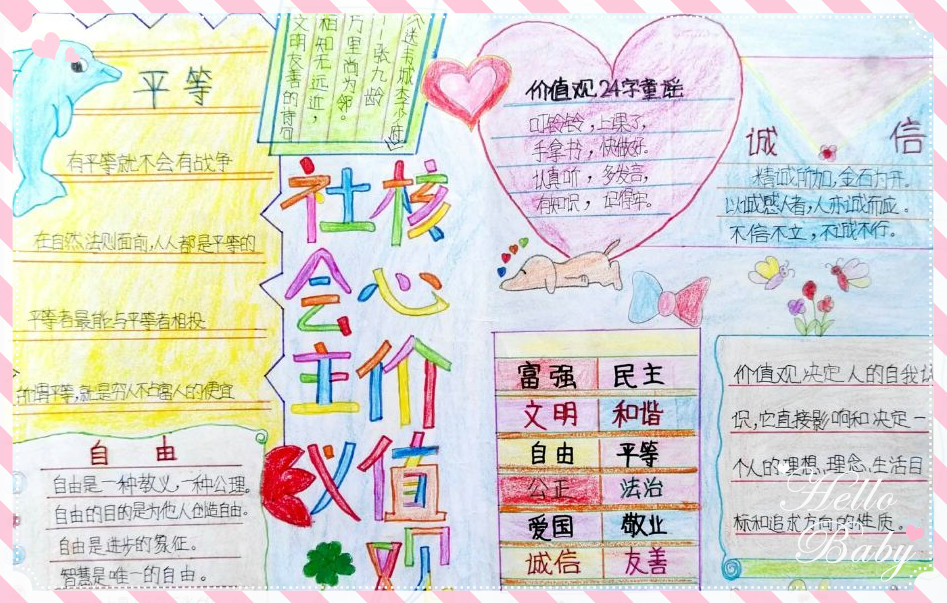 平等
有平等就不会有战争
在自然法则面前,人人都是平等的
平等者最能与平等者相投
所谓平等,就是穷人不占富人的便宜
自由
自由是一种教义,一种公理。
自由的目的是为他人创造自由。
自由是进步的象征。
智慧是唯一的自由。
文明友善的诗句
相知无远近,
万里尚为邻。
——张九龄
送韦城李少府
社会主义
核心价值观
价值观24字童谣
叮铃铃,上课了,
手拿书,快做好。
认真听,多发言,
有知识,记得牢。
诚信
精诚所加,金石为开。
以诚感人者,人亦诚而应。
不信不立,不诚不行。
富强 民主
文明 和谐
自由 平等
公正 法治
爱国 敬业
诚信 友善
价值观决定人的自我认
识,它直接影响和决定一
个人的理想、理念、生活目
标和追求方向的性质。
Hello
Baby